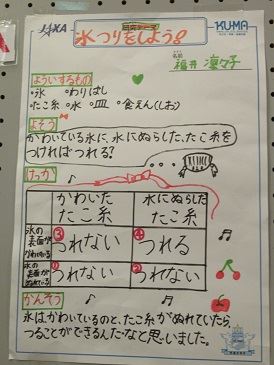 研究テーマ
氷つりをしよう!
KUMA
名前
福井 凜々子
よういするもの
・氷 ・わりばし
・たこ糸 ・水 ・皿 ・食えん(しお)
よそう
かわいている氷に、水にぬらした、たこ糸を
つければつれる?
けっか
かわいた
たこ糸
水にぬらした
たこ糸
氷の
表面が
かわいている
③
つれない
④
つれる
氷の
表面が
ぬれている
①
つれない
②
つれない
かんそう
氷は、かわいているのと、たこ糸がぬれていたら、
つることができるんだ・なと思いました。